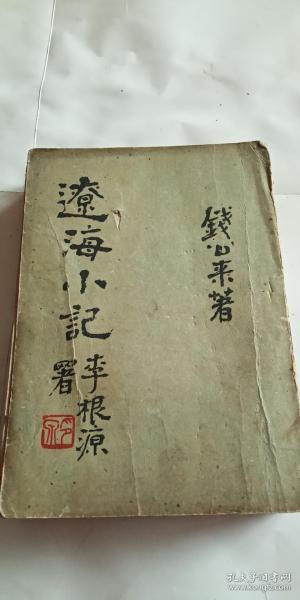 錢公來著
遼海小記
李根源
署
孔夫子旧书网